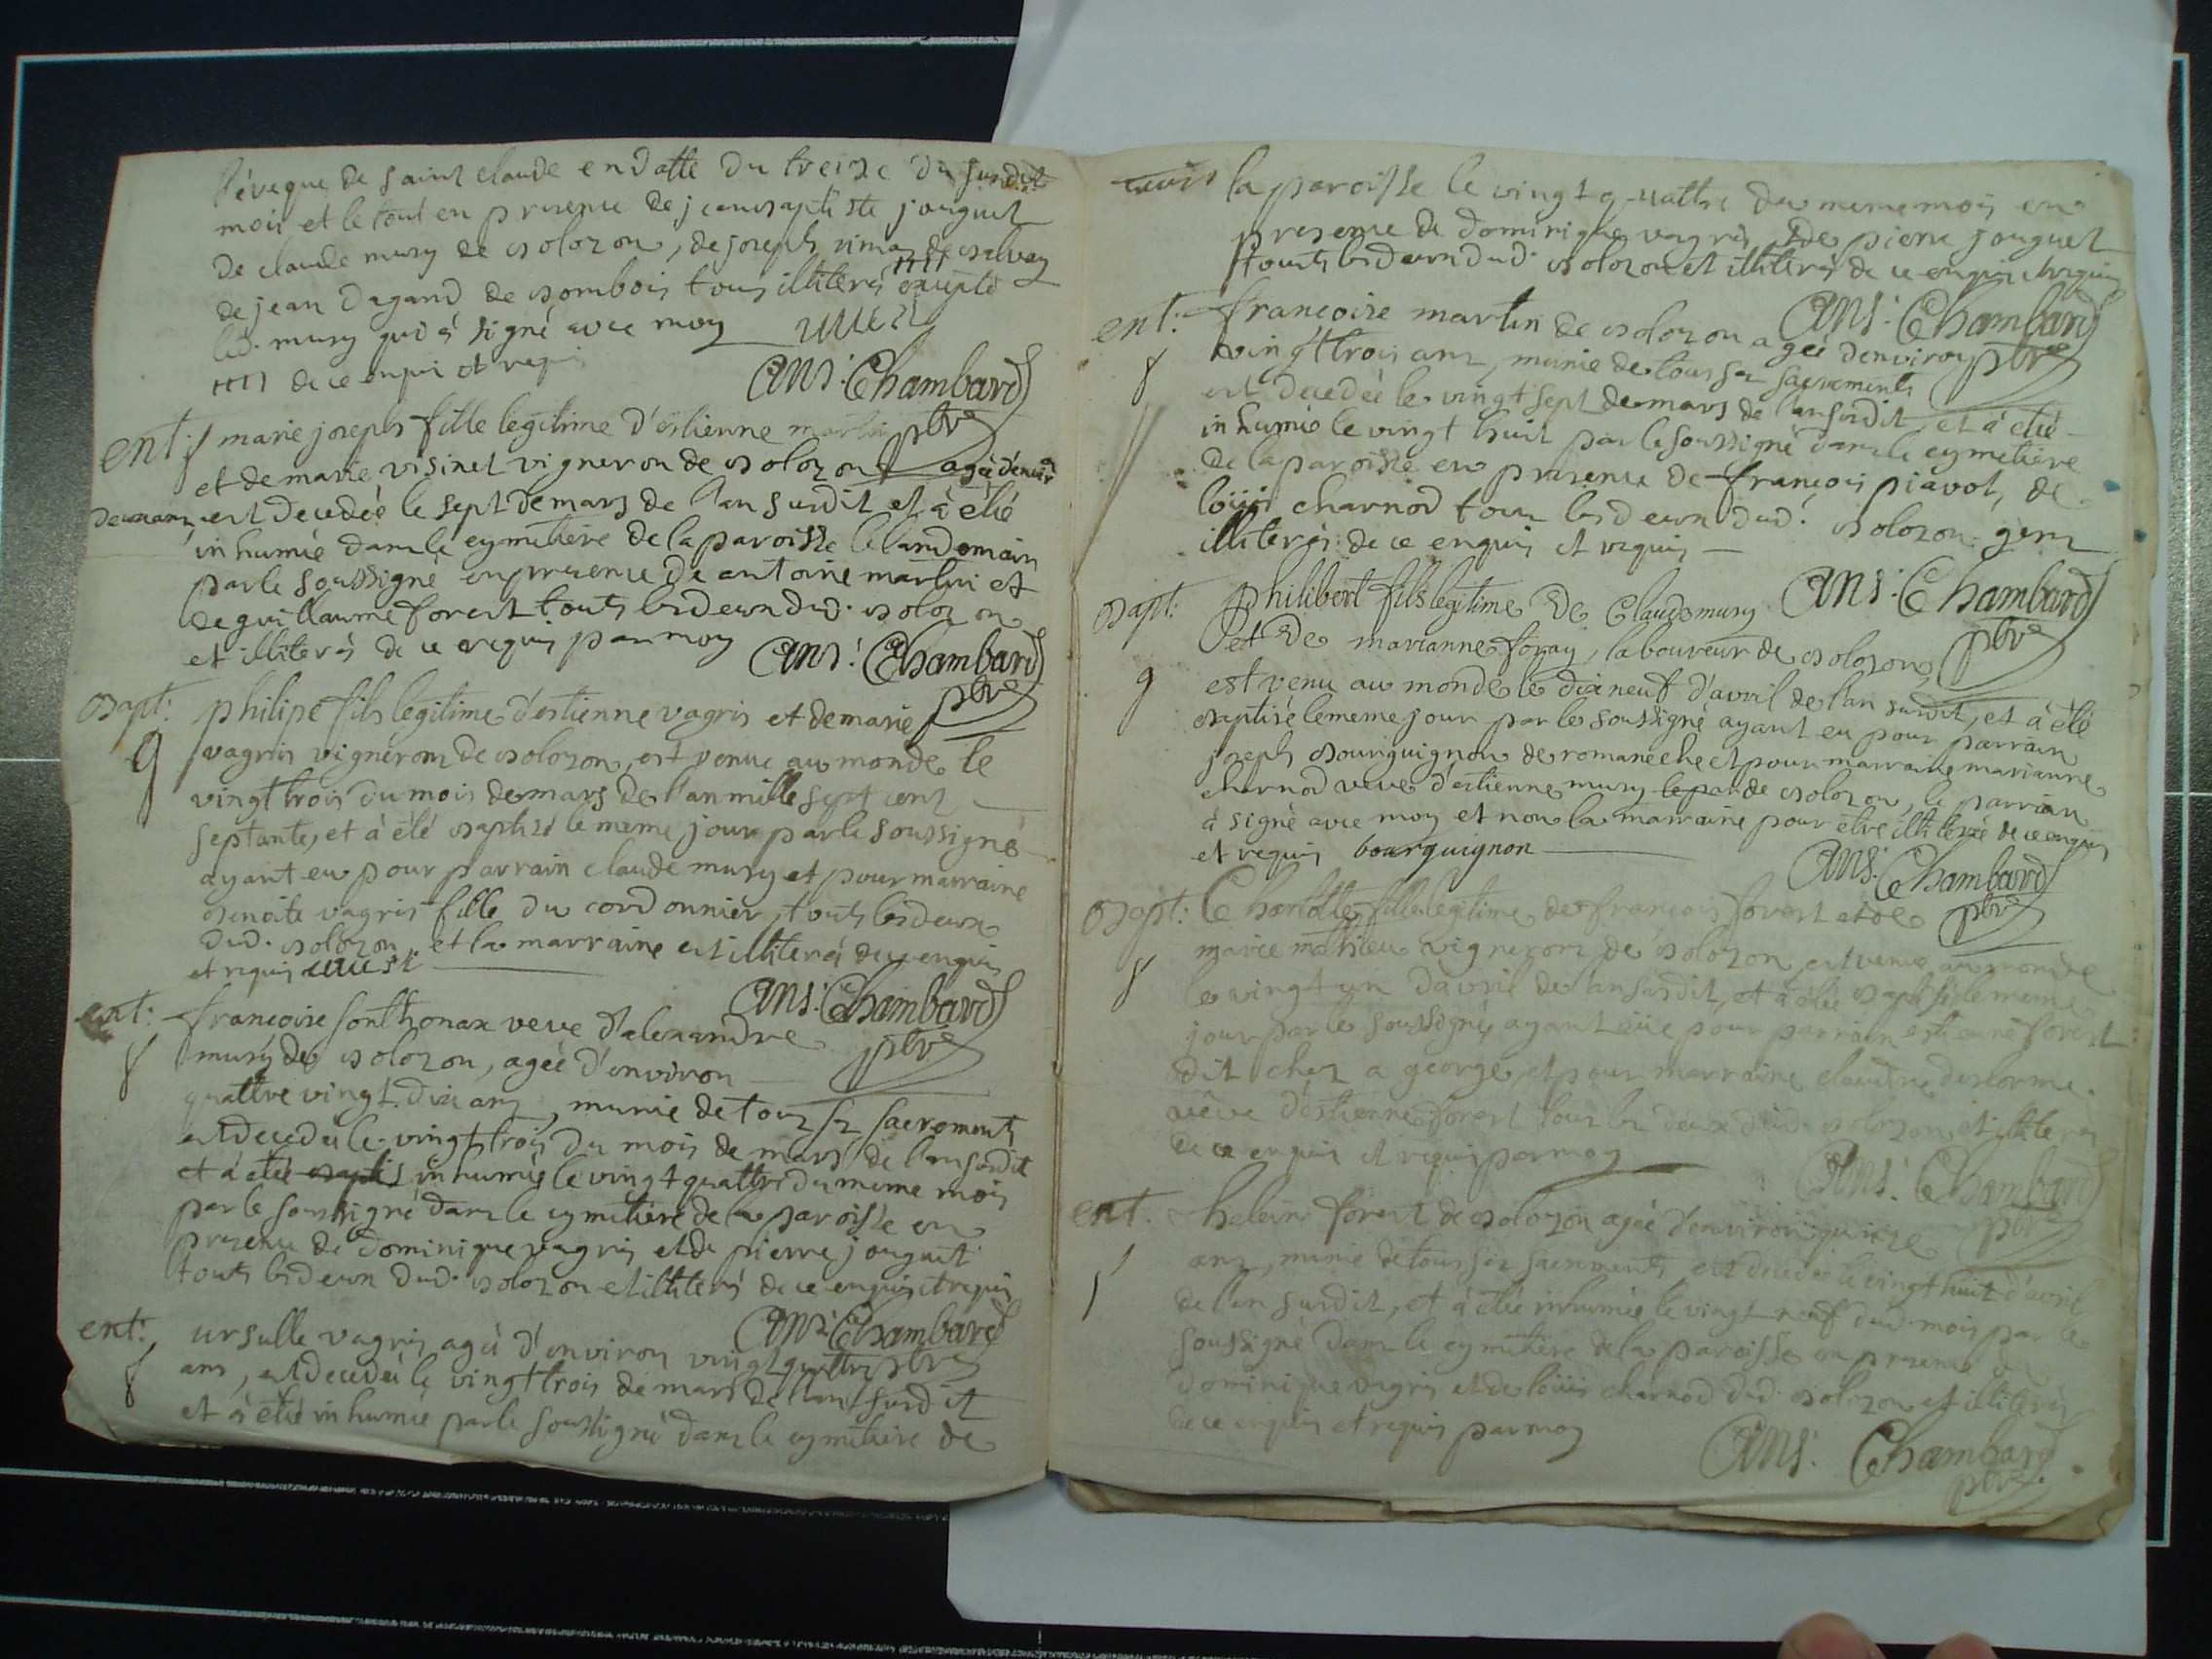 l'éveque de saint claude en datte du treize du susdit
mois et le tout en presence de jean baptiste jouguet
de claude mury de bolozon, de joseph de
de jean dagand de bombois tous illiterés excepté
led. mury qui à signé avec moy
de ce enquis et requis
Ans: Chambard
pbre
ent: marie joseph fille legitime d'estienne martin
et de marie visinet vigneron de bolozon agée d'environ
deux ans est decedéé le sept de mars de l'an susdit et à étéé
inhumée dans le cymetière de la paroisse le landemain
par le soussigné en presence de antoine martin et
de guillaume forest touts les deux dud. bolozon
et illiterés de ce requis par moy
Ans: Chambard
pbre
bapt: philipe fils legitime d'estienne vagris et de marie
9 vagris vignerons de bolozon, est venue au monde le
vingt trois du mois de mars de l'an mille sept cent
septante, et à été baptizé le meme jour par le soussigné
ayant eu pour parrain claude mury et pour marraine
benoite vagris fille du cordonnier, touts les deux
dud. bolozon, et la marraine est illiteré de ce enquis
et requis
Ans: Chambard
pbre
ent: francoise sonthonax veve d'alexandre
8 mury de bolozon, agéé d'environ
quattre vingt dix ans, munie de tous ses sacrements
est decedéé le vingt trois du mois de mars de l'an susdit
et à étéé baptis inhumée le vingt quattre du meme mois
par le soussigné dans le cymetière de la paroisse en
presence de dominique vagris et de pierre jouguet
touts les deux dud. bolozon et illiterés de ce enquis et requis
Ans: Chambard
pbre
ent: ursulle vagris agéé d'environ vingt quattre
8 ans, est decedéé le vingt trois de mars de l'an susdit
et à étéé inhumée par le soussigné dans le cymetière de
la paroisse le vingt quattre du meme mois en
presence de dominique vagris et de pierre jouguet
touts les deux dud. bolozon et illiterés de ce enquis et requis
Ans: Chambard
pbre
ent: francoise martin de bolozon agéé d'environ
8 vingt trois ans, munie de tous ses sacrements
est decedéé le vingt sept de mars de l'an susdit, et à étéé
inhumée le vingt huit par le soussigné dans le cymetière
de la paroisse en presence de francois piavot, de
loüis charnod tous les deux dud. bolozon gens
illiterés de ce enquis et requis
Ans: Chambard
pbre
bapt: philibert fils legitime de Claude mury
et de marianne foray, laboureur de bolozon,
9 est venu au monde le dix neuf d'avril de l'an susdit, et à été
baptisé le meme jour par le soussigné ayant eu pour parrain
joseph bourguignon de romaneche et pour marraine marianne
charnod veve d'estienne mury de bolozon, le parrain
à signé avec moy et non la marraine pour etre illiterée de ce enquis
et requis bourguignon
Ans: Chambard
pbre
bapt: Charlotte fille legitime de francois forest et de
marie mathieu vignerons de bolozon est venue au monde
8 le vingt un d'avril de l'an susdit, et à étéé baptisé le meme
jour par le soussigné, ayant eüe pour parrain estienne forest
dit chez a george, et pour marraine claudine deslorme
veve d'estienne forest tous les deux dud. bolozon et illiterés
de ce enquis et requis par moy
Ans: Chambard
pbre
ent. heleine forest de bolozon agéé d'environ quinze
ans, munie de tous ses sacrements est decedéé le vingt huit d'avril
de l'an susdit, et à étéé inhumée le vingt neuf dud. mois par le
soussigné dans le cymetière de la paroisse en presence de
dominique vagris et de loüis charnod dud. bolozon et illiterés
de ce enquis et requis par moy
Ans: Chambard
pbre